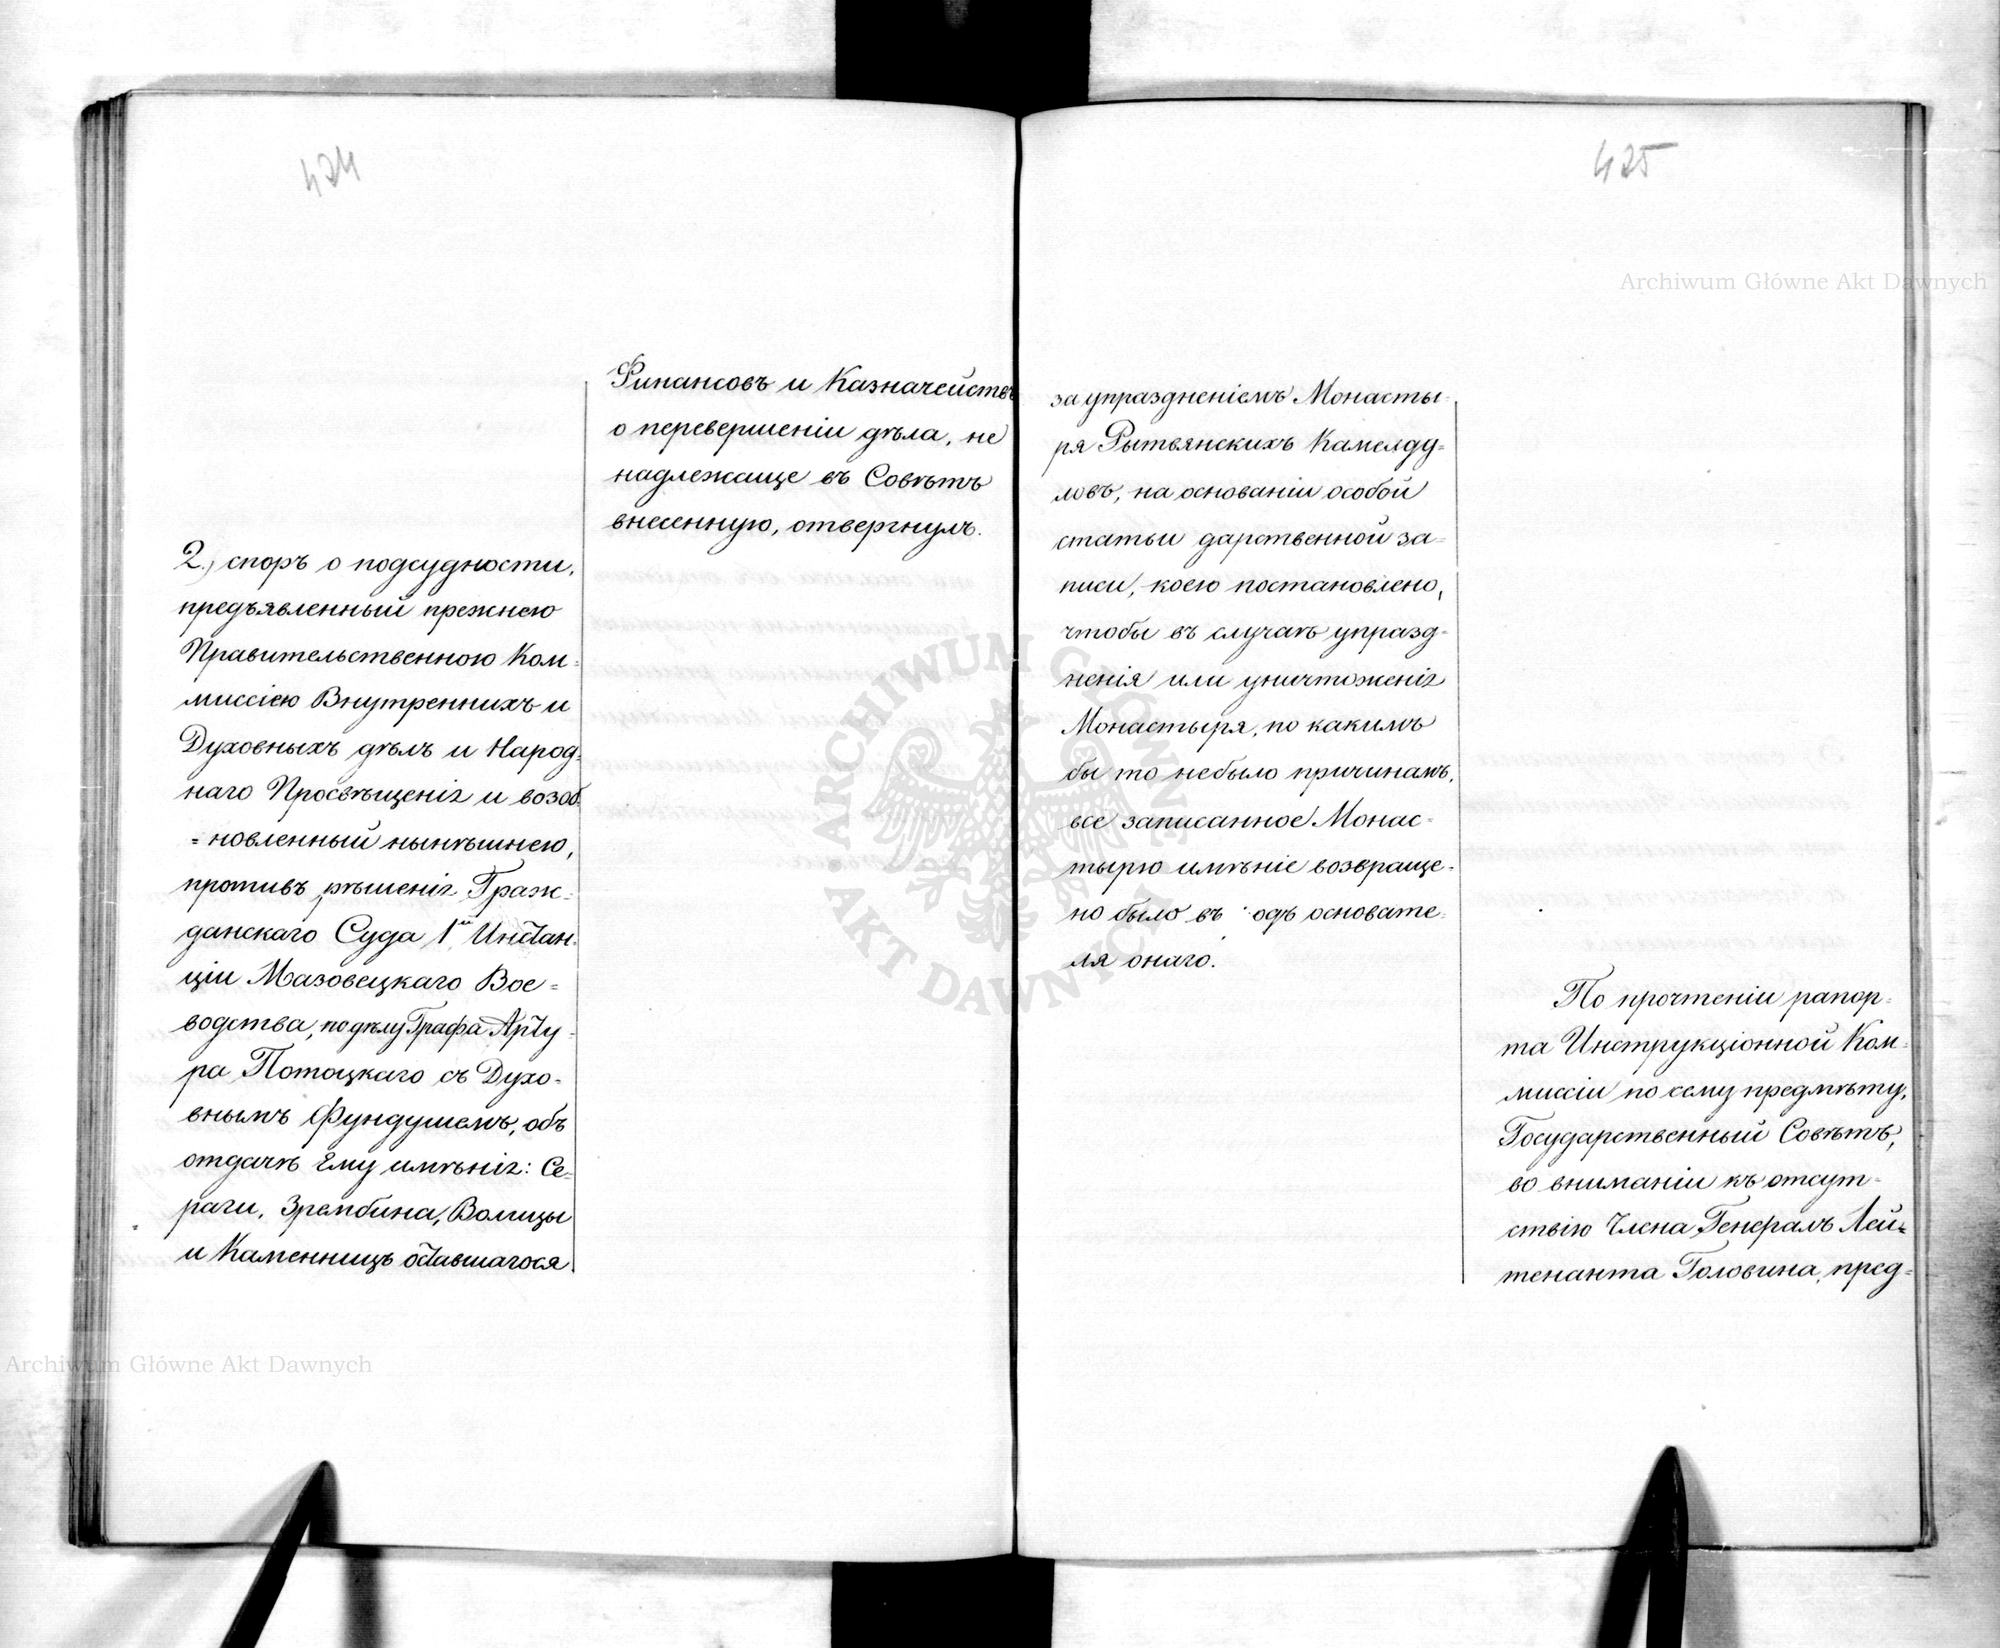 424
Финансовъ и Казначейства
о перевершеніи дѣла, не
надлежаще въ Совѣтъ
внесенную, отвергнулъ.
2., споръ о подсудности,
предъявленный прежнею
Правительственною Ком-
миссіею Внутреннихъ и
Духовныхъ дѣлъ и Народ-
наго Просвѣщенія и возоб-
=новленный нынѣшнею,
противъ рѣшенія Граж-
данскаго Суда 1й Инстан-
ціи Мазовецкаго Вое=
водства, по дѣлу Графа Арту-
ра Потоцкаго съ Духо-
внымъ Фундушемъ, объ
отдачѣ Ему имѣнія: Се-
раги, Зрембина, Волицы
и Каменницъ оставшагося
425
за упраздненіемъ Монасты-
ря Рытвянскихъ Камелду=
ловъ, на основаніи особой
статьи дарственной за=
писи, коею постановлено,
чтобы въ случаѣ упразд-
ненія или уничтоженія
Монастыря, по какимъ
бы то небыло причинамъ,
все записанное Монас-
тырю имѣніе возвраще-
но было въ одъ основате-
ля онаго.
По прочтеніи рапор-
та Инструкціонной Ком-
миссіи по сему предмѣту,
Государственный Совѣтъ,
во вниманіи къ отсут-
ствію Члена Генералъ Лей=
тенанта Головина, пред=
Archiwum Główne Akt Dawnych
Archiwum Główne Akt Dawnych
ARCHIWUM GŁÓWNE
AKT DAWNYCH